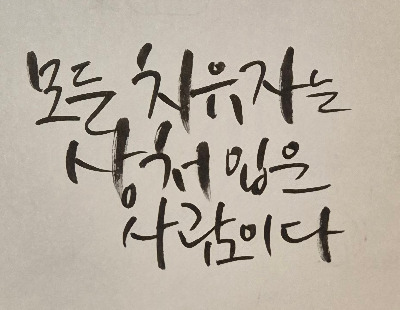 모든 치유자는
상처 입은
사람이다